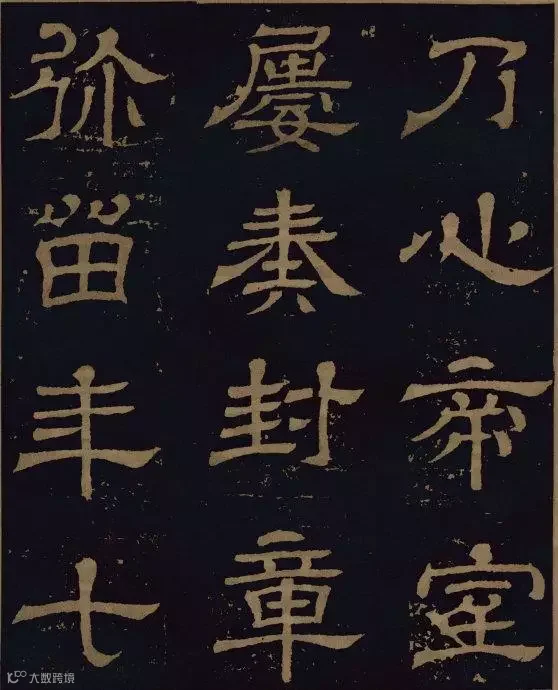 乃心帝室
屢奏封章
弥留年七
大数跨境